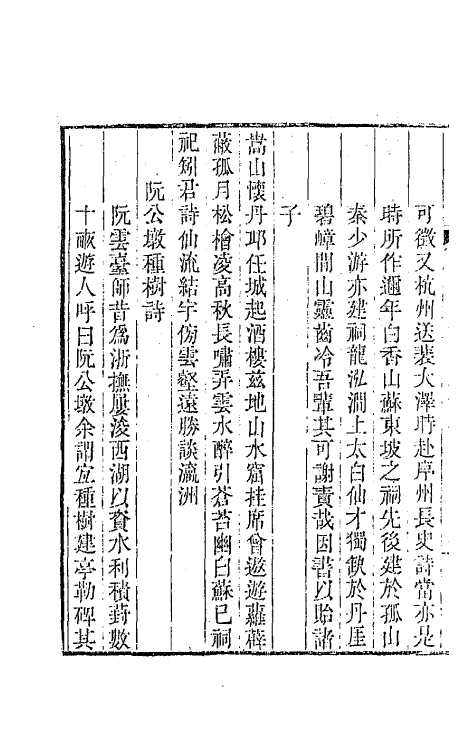 可徵又杭州送裴大澤時赴廬州長史詩當亦是
時所作邇年白香山蘇東坡之祠先後建於孤山
秦少游亦建祠龍泓澗上太白仙才獨缺於丹厓
碧嶂間山靈齒冷吾輩其可謝責哉因書以貽諸
子
嵩山懷丹邱任城起酒樓茲地山水窟挂席曾遨遊蘿薜
蔽孤月松檜凌高秋長嘯弄雲水醉引蒼苔幽白蘇已祠
祀矧君詩仙流結宇傍雲壑遠勝談瀛洲
阮公墩種樹詩
阮雲臺師昔為浙撫屢浚西湖以資水利積葑數
十畝遊人呼曰阮公墩余謂宜種樹建亭勒碑其